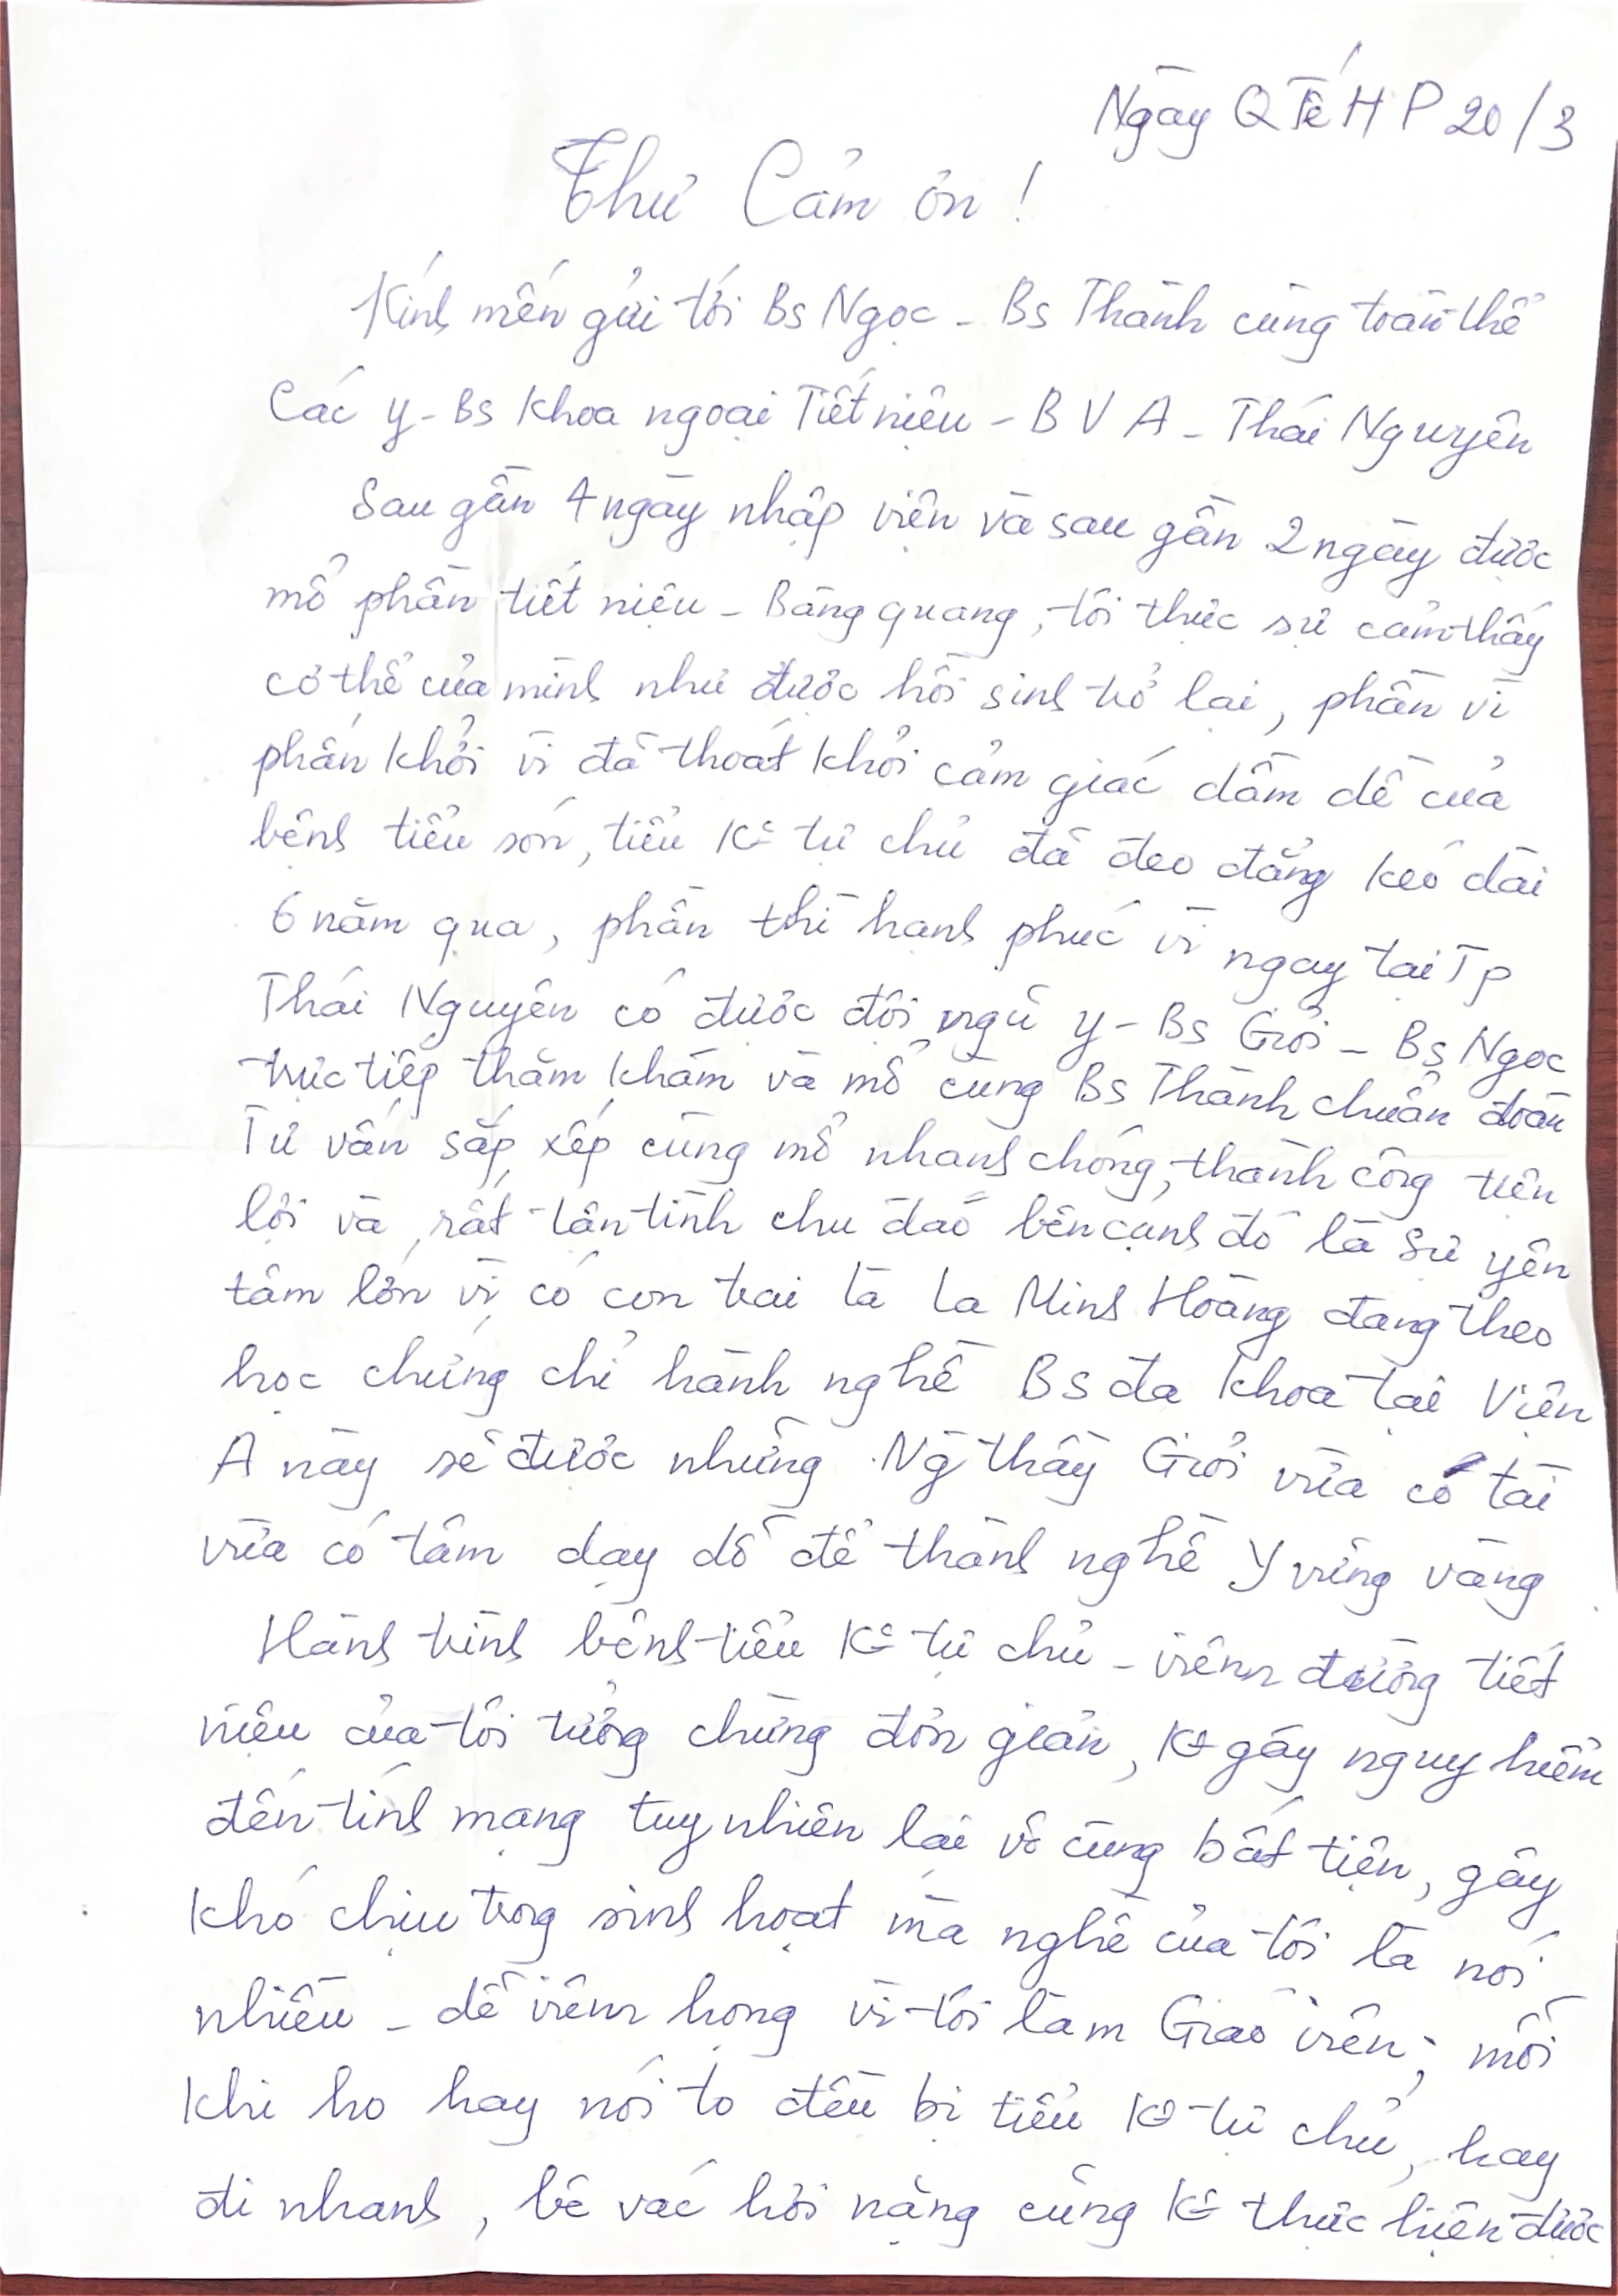 Ngày QTế HP 20/3
Thư Cảm ơn !
Kính mến gửi tới Bs Ngọc - Bs Thành cùng toàn thể
Các y - Bs khoa ngoại Tiết niệu - BV A - Thái Nguyên
Sau gần 4 ngày nhập viện và sau gần 2 ngày được
mổ phần tiết niệu - Bàng quang, tôi thực sự cảm thấy
cơ thể của mình như được hồi sinh trở lại, phần vì
phấn khởi vì đã thoát khỏi cảm giác dầm dề của
bệnh tiểu són, tiểu K° tự chủ đã đeo đẳng kéo dài
6 năm qua, phần thì hạnh phúc vì ngay tại Tp
Thái Nguyên có được đội ngũ y - Bs Giỏi - Bs Ngọc
trực tiếp thăm khám và mổ cùng Bs Thành chuẩn đoán
Tư vấn sắp xếp cùng mổ nhanh chóng, thành công tiện
lợi và rất tận tình chu đáo bên cạnh đó là sự yên
tâm lớn vì có con trai là La Minh Hoàng đang theo
học chứng chỉ hành nghề Bs đa khoa tại Viện
A này sẽ được những Ng thầy Giỏi vừa có tài
vừa có tâm dạy dỗ để thành nghề Y vững vàng
Hành trình bệnh tiểu K° tự chủ - viêm đường tiết
niệu của tôi tưởng chừng đơn giản, K° gây nguy hiểm
đến tính mạng tuy nhiên lại vô cùng bất tiện, gây
khó chịu trong sinh hoạt mà nghề của tôi là nói
nhiều - dễ viêm họng vì tôi làm Giáo viên; mỗi
khi ho hay nói to đều bị tiểu K° tự chủ, hay
đi nhanh, bê vác hơi nặng cũng K° thực hiện được